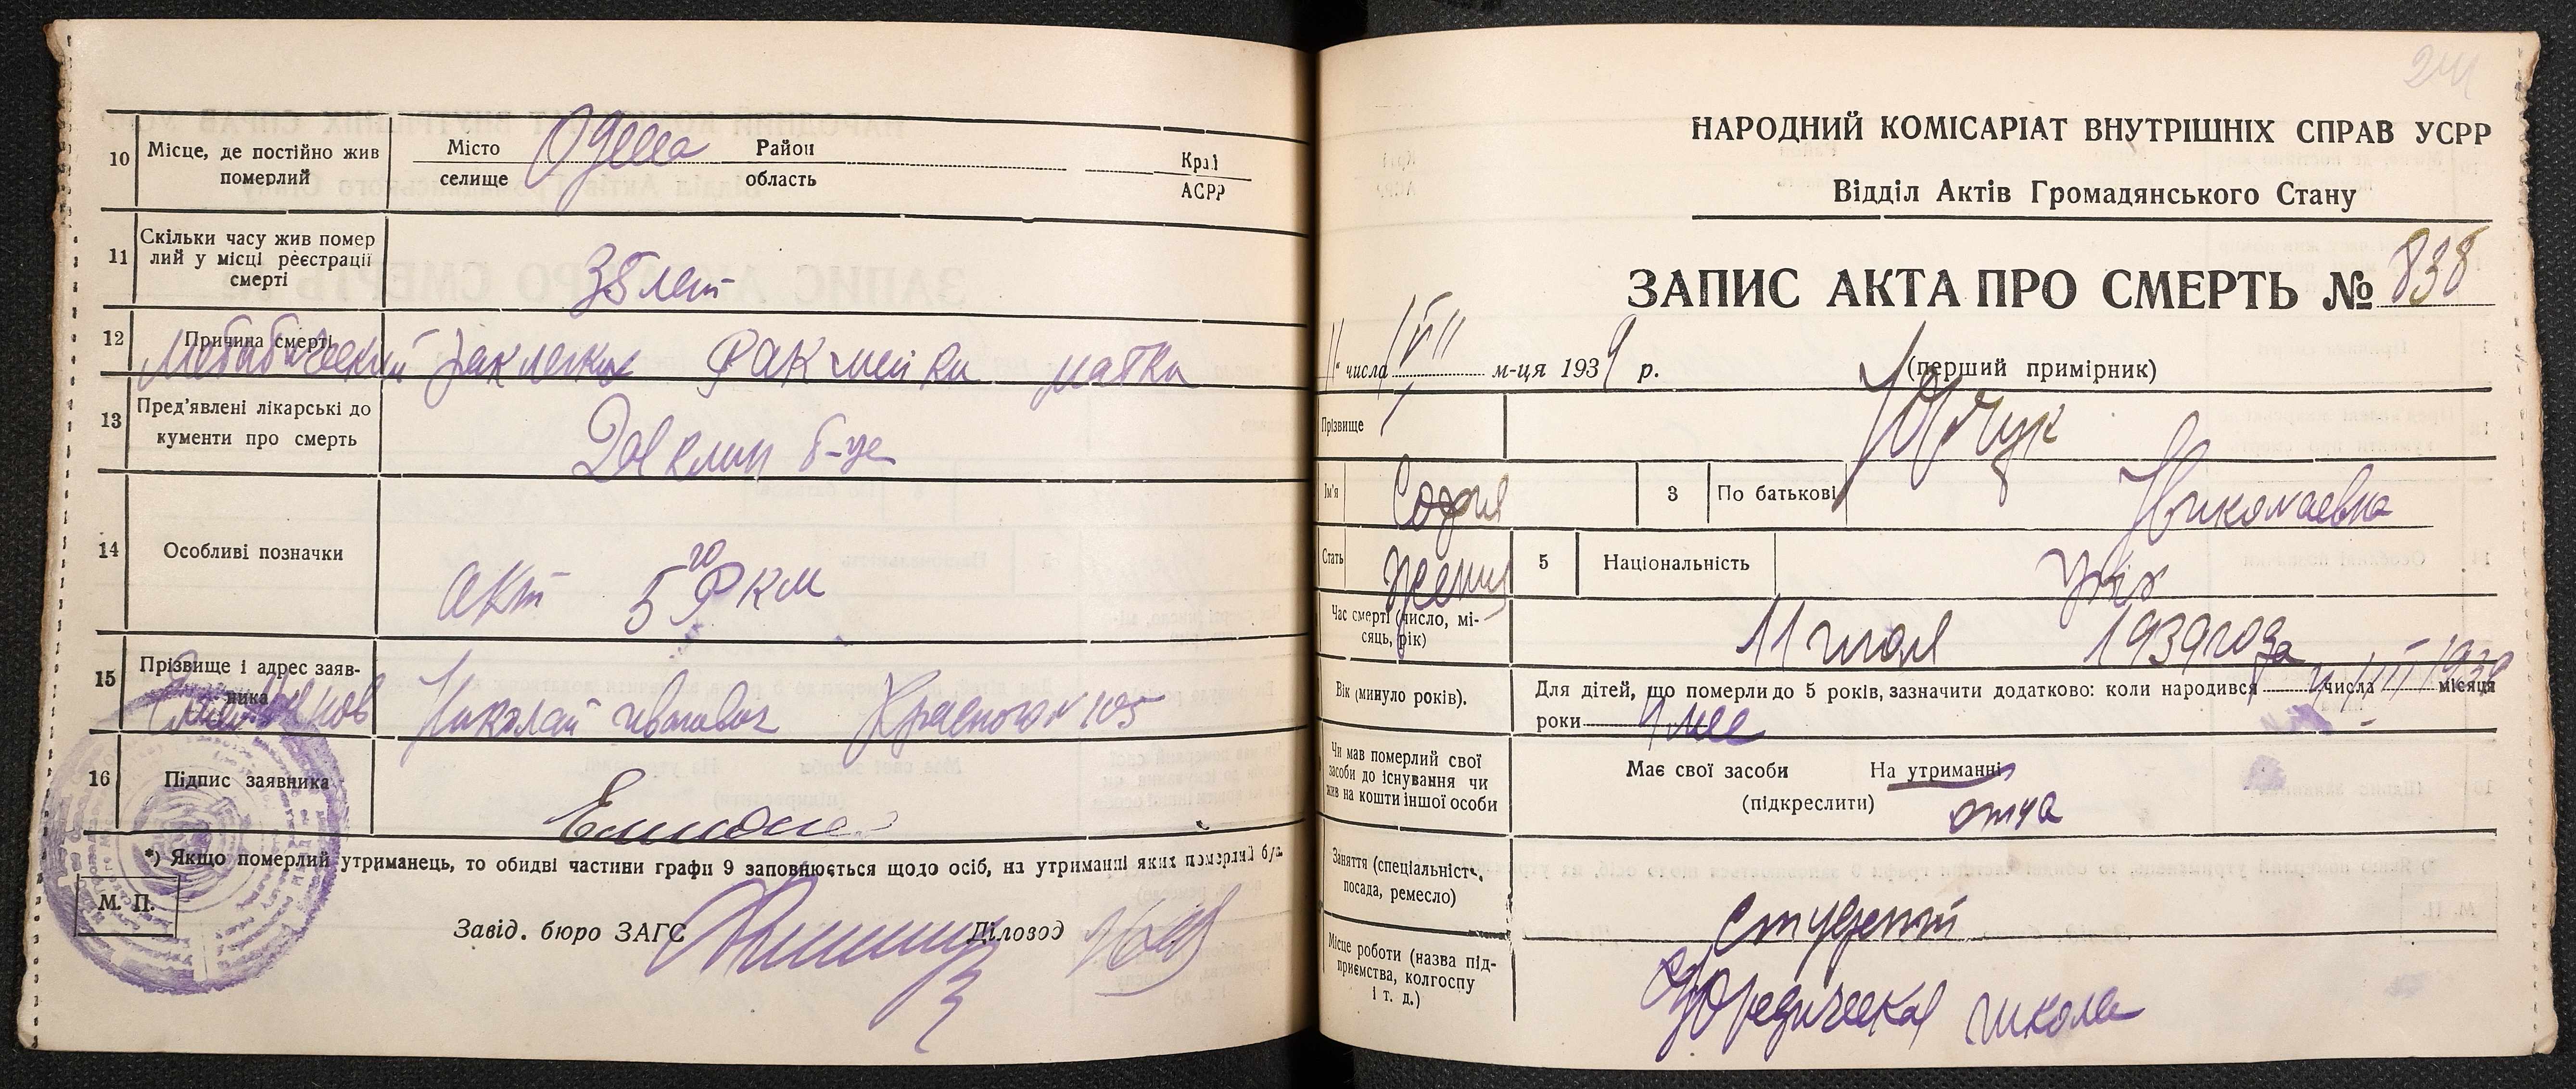 10 Місце, де постійно жив померлий
Місто селище Одесса Район область Край АСРР
11 Скільки часу жив помер лий у місці реєстрації смерті
38 лет
12 Причина смерті
рак легких рак шейки матки
13 Пред'явлені лікарські до кументи про смерть
клин б-це
14 Особливі позначки
акт 5го РКМ
15 Прізвище і адрес заяв- ника
Николай Иванович № 105
16 Підпис заявника
*) Якщо померлий утриманець, то обидві частини графи 9 заповнюється щодо осіб, на утриманні яких померлий був.
М. П.
Завід. бюро ЗАГС Діловод
241
НАРОДНИЙ КОМІСАРІАТ ВНУТРІШНІХ СПРАВ УСРР
Відділ Актів Громадянського Стану
ЗАПИС АКТА ПРО СМЕРТЬ № 838
"11" числа VII м-ця 1939 р. (перший примірник)
Прізвище
Ім'я София 3 По батькові Николаевна
Стать женщ 5 Національність укр
Час смерті (число, мі- сяць, рік) 11 июля 1939 года
Вік (минуло років). Для дітей, що померли до 5 років, зазначити додатково: коли народився числа місяця
роки
Чи мав померлий свої засоби до існування чи жив на кошти іншої особи
Має свої засоби На утриманні
(підкреслити) отца
Заняття (спеціальність, посада, ремесло)
студент
Місце роботи (назва під- приємства, колгоспу і т. д.)
Юредическая школа